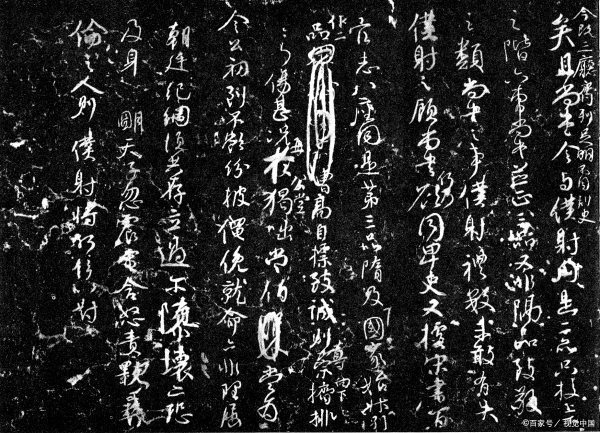 今既三廳齊列足明不同刺史
矣且尚書令與僕射同是二品只校上下
之階六曹尚書並正三品又非隔品致敬
之類尚書之事僕射禮數未敢有失
僕射之顧尚書何乃欲同卑吏又據宋書百
官志八座同是第三品隋及國家始升
作二品高自標致誠則尊崇向下擠排
無乃傷甚況再於公堂獨咄常伯當為
令公初到不欲紛披僶俛就命亦非理屈
朝廷紀綱須共存立過爾隳壞亦恐
及身明天子忽震電含怒責斁彝
倫之人則僕射將何辭以對
©百家号/视觉中国